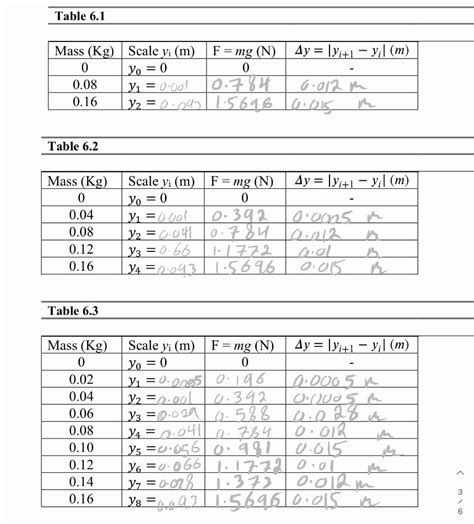 Table 6.1
Mass (Kg) Scale yᵢ (m) F = mg (N) Δy = |yᵢ₊₁ − yᵢ| (m)
0 y₀ = 0 0 -
0.08 y₁ = 0.001 0.784 0.012 m
0.16 y₂ = 0.093 1.5696 0.015 m
Table 6.2
Mass (Kg) Scale yᵢ (m) F = mg (N) Δy = |yᵢ₊₁ − yᵢ| (m)
0 y₀ = 0 0 -
0.04 y₁ = 0.001 0.392 m
0.08 y₂ = 0.041 0.784 0.012 m
0.12 y₃ = 0.66 1.1772 0.01 m
0.16 y₄ = 0.093 1.5696 0.015 m
Table 6.3
Mass (Kg) Scale yᵢ (m) F = mg (N) Δy = |yᵢ₊₁ − yᵢ| (m)
0 y₀ = 0 0 -
0.02 y₁ = 0.0005 0.196 0.0005 m
0.04 y₂ = 0.001 0.392 0.0005 m
0.06 y₃ = 0.029 0.588 0.028 m
0.08 y₄ = 0.041 0.784 0.012 m
0.10 y₅ = 0.056 0.981 0.015 m
0.12 y₆ = 0.066 1.1772 0.01 m
0.14 y₇ = 0.078 1.373 0.012 m
0.16 y₈ = 0.093 1.5696 0.015 m
3
/
6